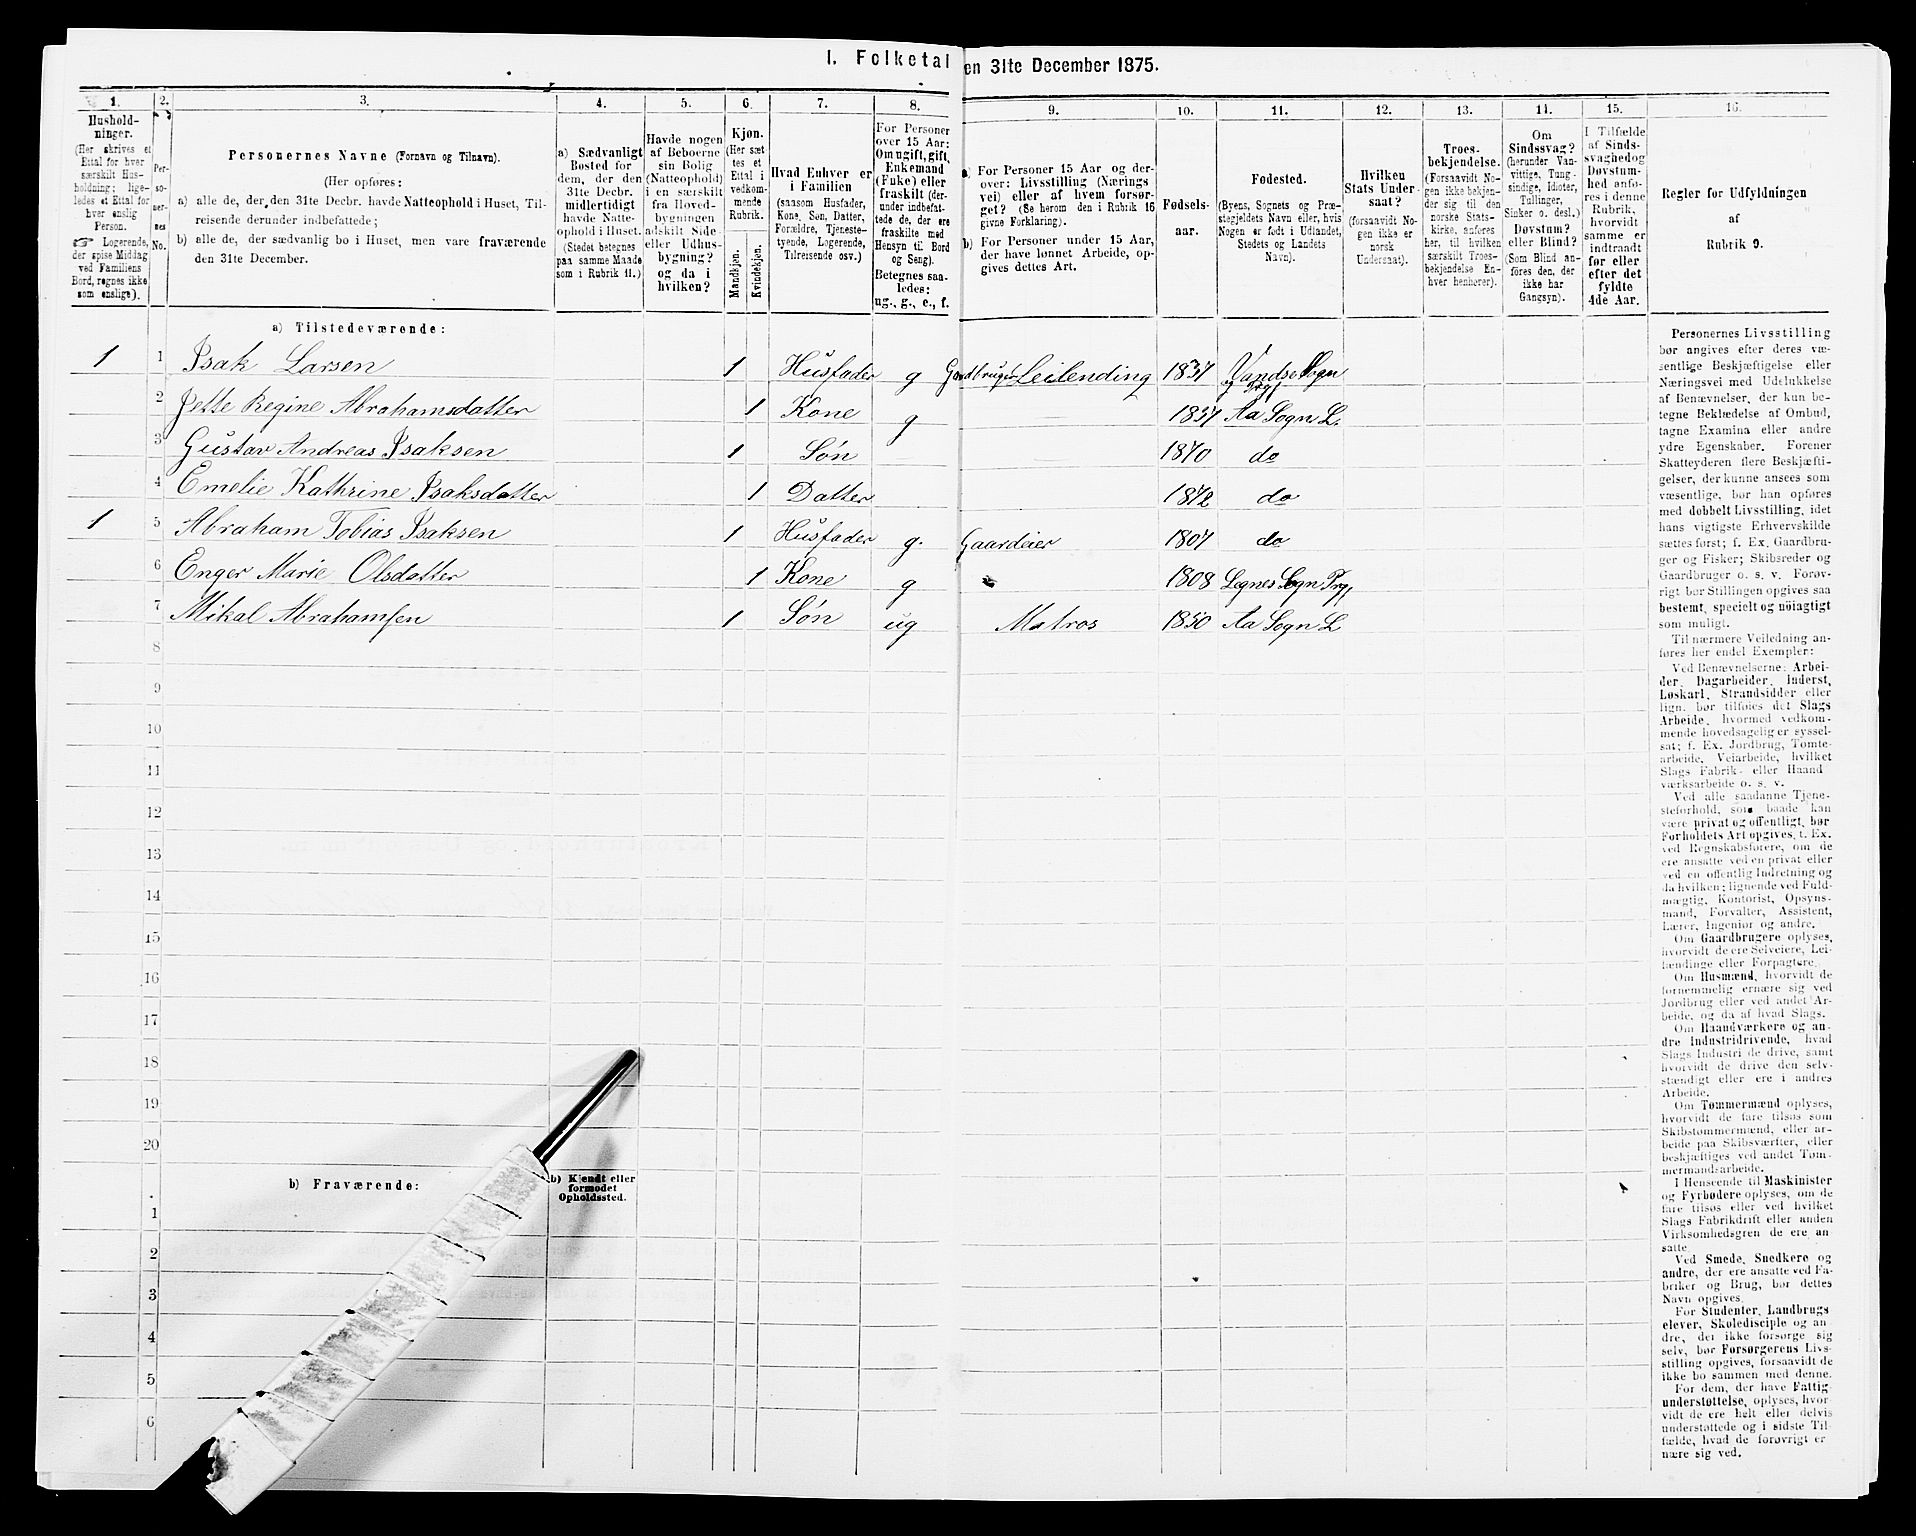 I. Folketal
en 31te December 1875.
1.
2.
3.
4.
5.
6.
7.
8.
9.
10.
11.
12.
13.
14.
15.
16.
Hushold-
ninger.
(Her skrives et
Ettal for hver
særskilt Hus-
holdning; lige-
ledes et Ettal for
hver enslig
Person.
Logerende,
der spise Middag
ved Familiens
Bord, regnes ikke
som enslige).
Per-
so-
ner-
nes
No.
Personernes Navne (Fornavn og Tilnavn).
(Her opføres:
a) alle de, der den 31te Decbr. havde Natteophold i Huset, Til-
reisende derunder indbefattede;
b) alle de, der sædvanlig bo i Huset, men vare fraværende
den 31te December.
a) Sædvanligt
Bosted for
dem, der den
31te Decbr.
midlertidigt
havde Natte-
ophold i Huset.
(Stedet betegnes
paa samme Maade
som i Rubrik 11.)
Havde nogen
af Beboerne
sin Bolig
(Natteophold)
i en særskilt
fra Hoved-
bygningen
adskilt Side-
eller Udhus-
bygning?
og da i
hvilken?
Kjøn.
(Her sæt-
tes et
Ettal i
vedkom-
mende
Rubrik.
Mandkjøn.
Kvindekjøn.
Hvad Enhver er
i Familien
(saasom Husfader,
Kone, Søn, Datter,
Forældre, Tjeneste-
tyende, Logerende,
Tilreisende osv.)
For Personer
over 15 Aar:
Om ugift, gift,
Enkemand
(Enke) eller
fraskilt (der-
under indbefat-
tede de, der ere
fraskilte med
Hensyn til Bord
og Seng).
Betegnes saa-
ledes:
ug., g., e., f.
a) For Personer 15 Aar og der-
over: Livsstilling (Nærings-
vei) eller af hvem forsør-
get? (Se herom den i Rubrik 16
givne Forklaring).
b) For Personer under 15 Aar,
der have lønnet Arbeide, op-
gives dettes Art.
Fødsels-
aar.
Fødested.
(Byens, Sognets og Præ-
stegjeldets Navn eller, hvis
Nogen er født i Udlandet,
Stedets og Landets
Navn).
Hvilken
Stats Under-
saat?
(forsaavidt No-
gen ikke er
norsk
Undersaat).
Troes-
bekjendelse.
(Forsaavidt No-
gen ikke bekjen-
der sig til den
norske Stats-
kirke, anføres
her, til hvilken
særskilt Troes-
bekjendelse En-
hver henhører).
Om
Sindssvag?
(herunder Van-
vittige, Tung-
sindige, Idioter,
Tullinger,
Sinker o. desl.)
Døvstum?
eller Blind?
(Som Blind an-
føres den, der
ikke har
Gangsyn).
I Tilfælde
af Sinds-
svaghed og
Døvstum-
hed anfø-
res i denne
Rubrik,
hvorvidt
samme er
indtraadt
før eller
efter det
fyldte
4de Aar.
Regler for Udfyldningen
af
Rubrik 9.
a) Tilstedeværende:
1 1 Isak Larsen 1 Husfader g Gardbruger Leilending 1837 Vandse Sogn
2 Jette Regine Abrahamsdatter 1 Kone g 1837 Aa Sogn L.
3 Gustav Andreas Isaksen 1 Søn 1870 do
4 Emelie Kathrine Isaksdatter 1 Datter 1872 do
1 5 Abraham Tobias Isaksen 1 Husfader g. Gaardeier 1807 do
6 Enger Marie Olsdatter 1 Kone g 1808 Sogn
7 Mikal Abrahamsen 1 Søn ug Matros 1850 Aa Sogn L
8
9
10
11
12
13
14
15
16
17
18
19
20
b) Fraværende:
b) Kjendt eller
formodet
Opholdssted.
1
2
3
4
5
6
Personernes Livsstilling
bør angives efter deres væ-
sentlige Beskjæftigelse eller
Næringsvei med Udelukkelse
af Benævnelser, der kun be-
tegne Beklædelse af Ombud,
tagne Examina eller andre
ydre Egenskaber. Forener
Skatteyderen flere Beskjæfti-
gelser, der kunne ansees som
væsentlige, bør han opføres
med dobbelt Livsstilling, idet
hans vigtigste Erhvervskilde
sættes først; f. Ex. Gaardbru-
ger og Fisker; Skibsreder og
Gaardbruger o. s. v. Forøv-
rigt bør Stillingen opgives saa
bestemt, specielt og nöiagtigt
som muligt.
Til nærmere Veiledning an-
føres her endel Exempler:
Ved Benævnelserne: Arbei-
der, Dagarbeider, Inderst,
Løskarl, Strandsidder eller
lign. bør tilføies det Slags
Arbeide, hvormed vedkom-
mende hovedsagelig er syssel-
sat; f. Ex. Jordbrug, Tomte-
arbeide, Veiarbeide, hvilket
Slags Fabrik- eller Haand
værksarbeide o. s. v.
Ved alle saadanne Tjene-
steforhold, som baade kan
være privat og offentligt, bør
Forholdets Art opgives, t. Ex.
ved Regnskabsførere, om de
ere ansatte ved en privat eller
ved en offentlig Indretning og
da hvilken; lignende ved Fuld-
mægtig, Kontorist, Opsyns-
mand, Forvalter, Assistent,
Lærer, Ingeniør og andre.
Om Gaardbrugere oplyses,
hvorvidt de ere Selveiere, Lei-
lændinge eller Forpagtere.
Om Husmænd, hvorvidt de
fornemmelig ernære sig ved
Jordbrug eller ved andet Ar-
beide, og da af hvad Slags.
Om Haandværkere og an-
dre Industridrivende, hvad
Slags Industri de drive, samt
hvorvidt de drive den selv-
stændigt eller ere i andres
Arbeide.
Om Tømmermænd oplyses,
hvorvidt de fare tilsøs som
Skibstømmermænd, eller ar-
beide paa Skibsværfter, eller
beskjæftiges ved andet Tøm-
mermandsarbeide.
I Henseende til Maskinister
og Fyrbødere oplyses, om de
fare tilsøs eller ved hvilket
Slags Fabrikdrift eller anden
Virksomhedsgren de ere an-
satte.
Ved Smede, Snedkere og
andre, der ere ansatte ved Fa-
briker og Brug, bør dettes
Navn opgives.
For Studenter, Landbrugs
elever, Skoledisciple og an
dre, der ikke forsørge sig
selv, bør Forsørgerens Livs-
stilling opgives, forsaavidt de
ikke bo sammen med denne.
For dem, der have Fattig
understøttelse, oplyses, hvor-
vidt de ere helt eller delvis
understøttede og i sidste Til-
fælde, hvad de forøvrigt er
nære sig ved.